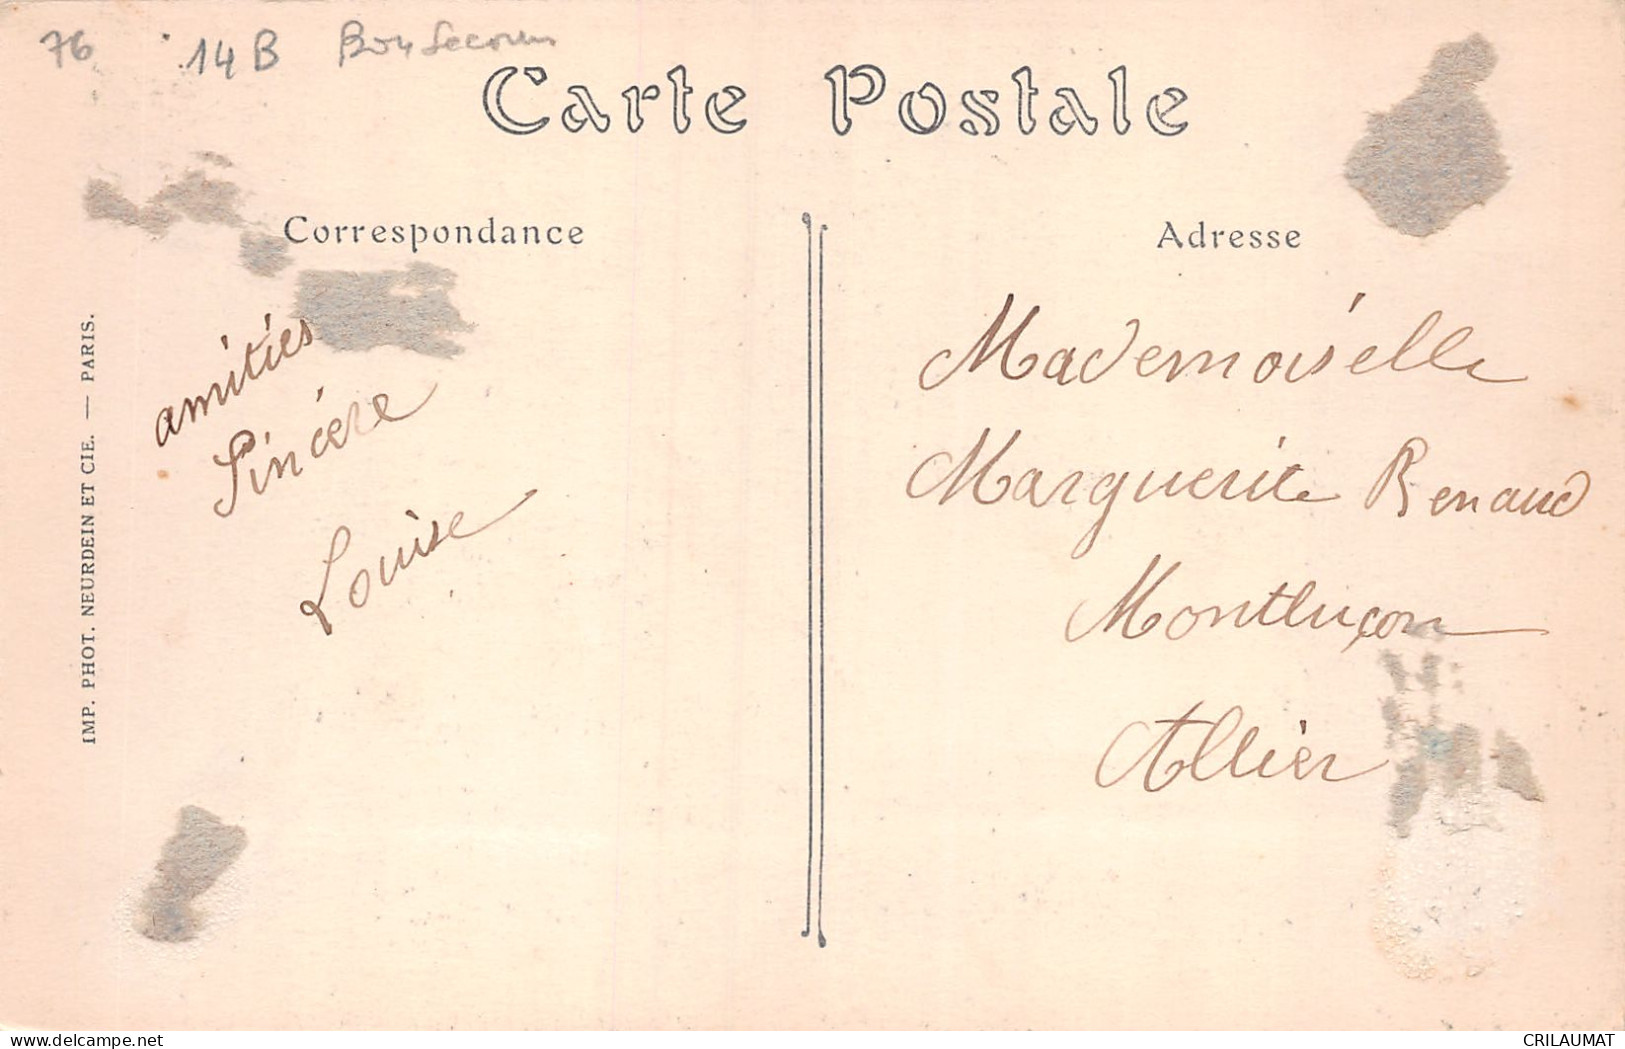 76 14B Bonsecours
Carte Postale
Correspondance
Adresse
amitiés
Sincère
Louise
Mademoiselle
Marguerite Renaud
Montluçon
Allier
IMP. PHOT. NEURDEIN ET CIE. — PARIS.
www.delcampe.net
CRILAUMAT